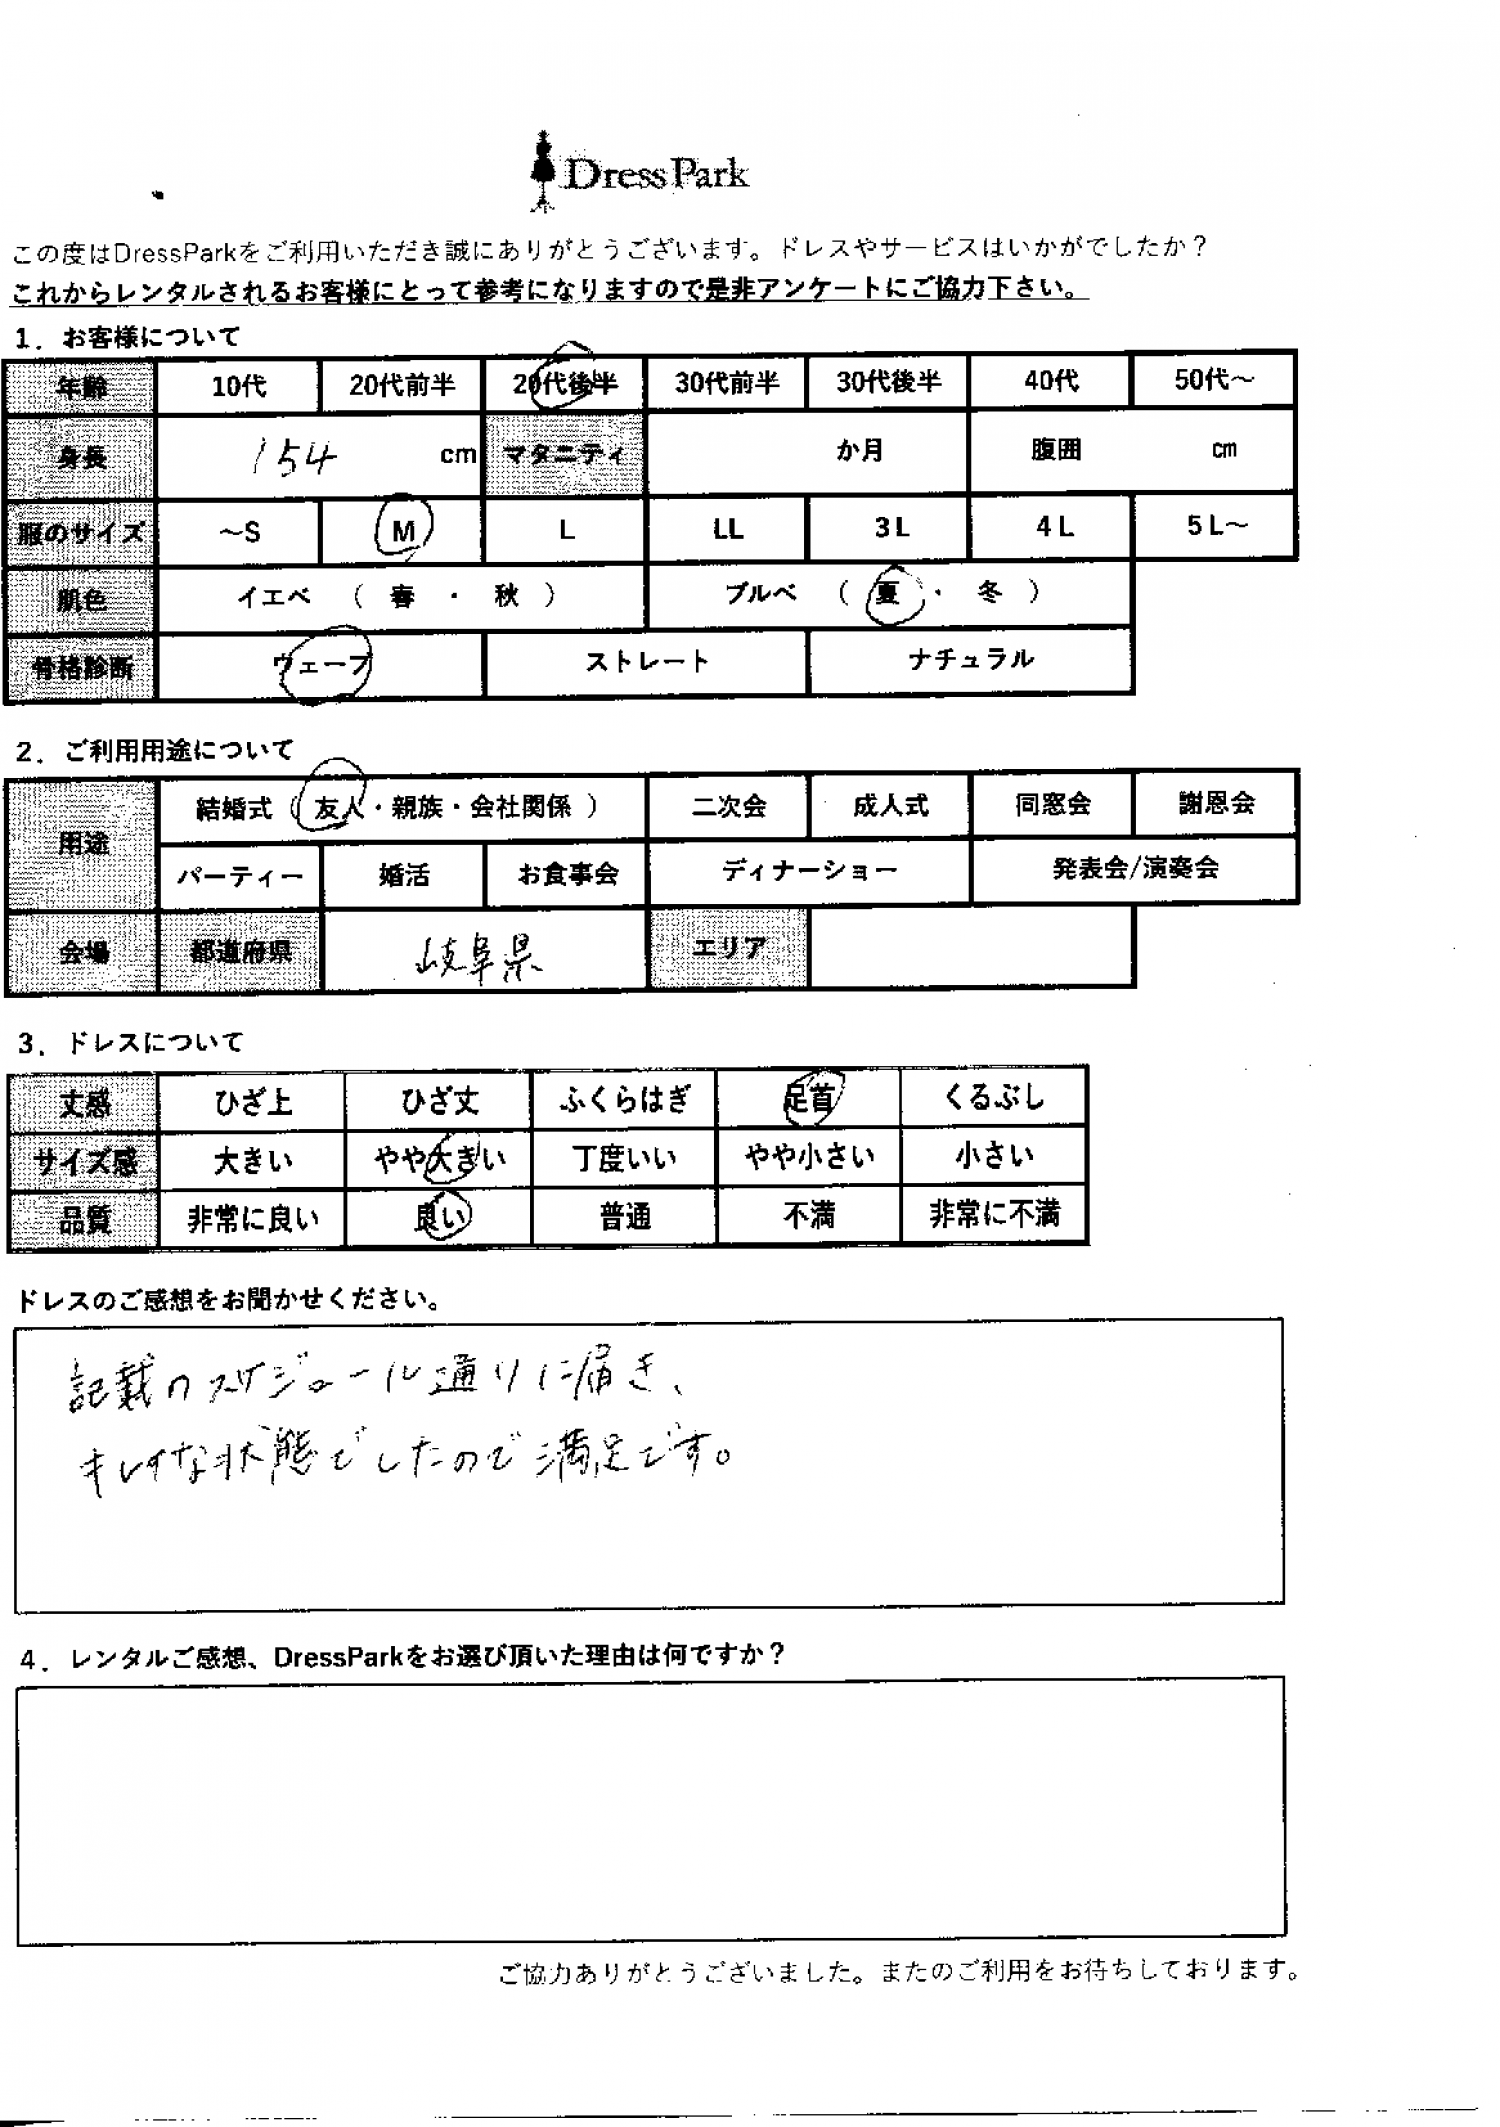 DressPark
この度はDressParkをご利用いただき誠にありがとうございます。ドレスやサービスはいかがでしたか？
これからレンタルされるお客様にとって参考になりますので是非アンケートにご協力下さい。
1．お客様について
年齢 10代 20代前半 20代後半 30代前半 30代後半 40代 50代～
身長 154 cm マタニティ か月 腹囲 cm
服のサイズ ～S M L LL 3L 4L 5L～
肌色 イエベ（春・秋） ブルベ（夏・冬）
骨格診断 ウェーブ ストレート ナチュラル
2．ご利用用途について
用途 結婚式（友人・親族・会社関係） 二次会 成人式 同窓会 謝恩会
パーティー 婚活 お食事会 ディナーショー 発表会/演奏会
会場 都道府県 岐阜県 エリア
3．ドレスについて
丈感 ひざ上 ひざ丈 ふくらはぎ 足首 くるぶし
サイズ感 大きい やや大きい 丁度いい やや小さい 小さい
品質 非常に良い 良い 普通 不満 非常に不満
ドレスのご感想をお聞かせください。
記載のスケジュール通りに届き、
キレイな状態でしたので満足です。
4．レンタルご感想、DressParkをお選び頂いた理由は何ですか？
ご協力ありがとうございました。またのご利用をお待ちしております。